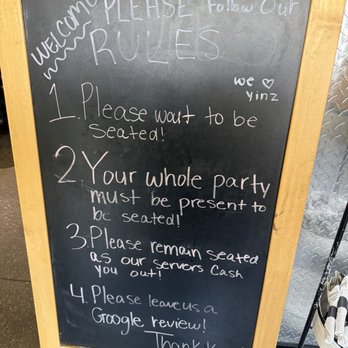 WELCOME
PLEASE Follow Our
RULES
we ♡
yinz
1. Please wait to be
seated!
2 Your whole party
must be present to
be seated!
3. Please remain seated
as our servers cash
you out!
4. Please leave us a
Google review!
Thank